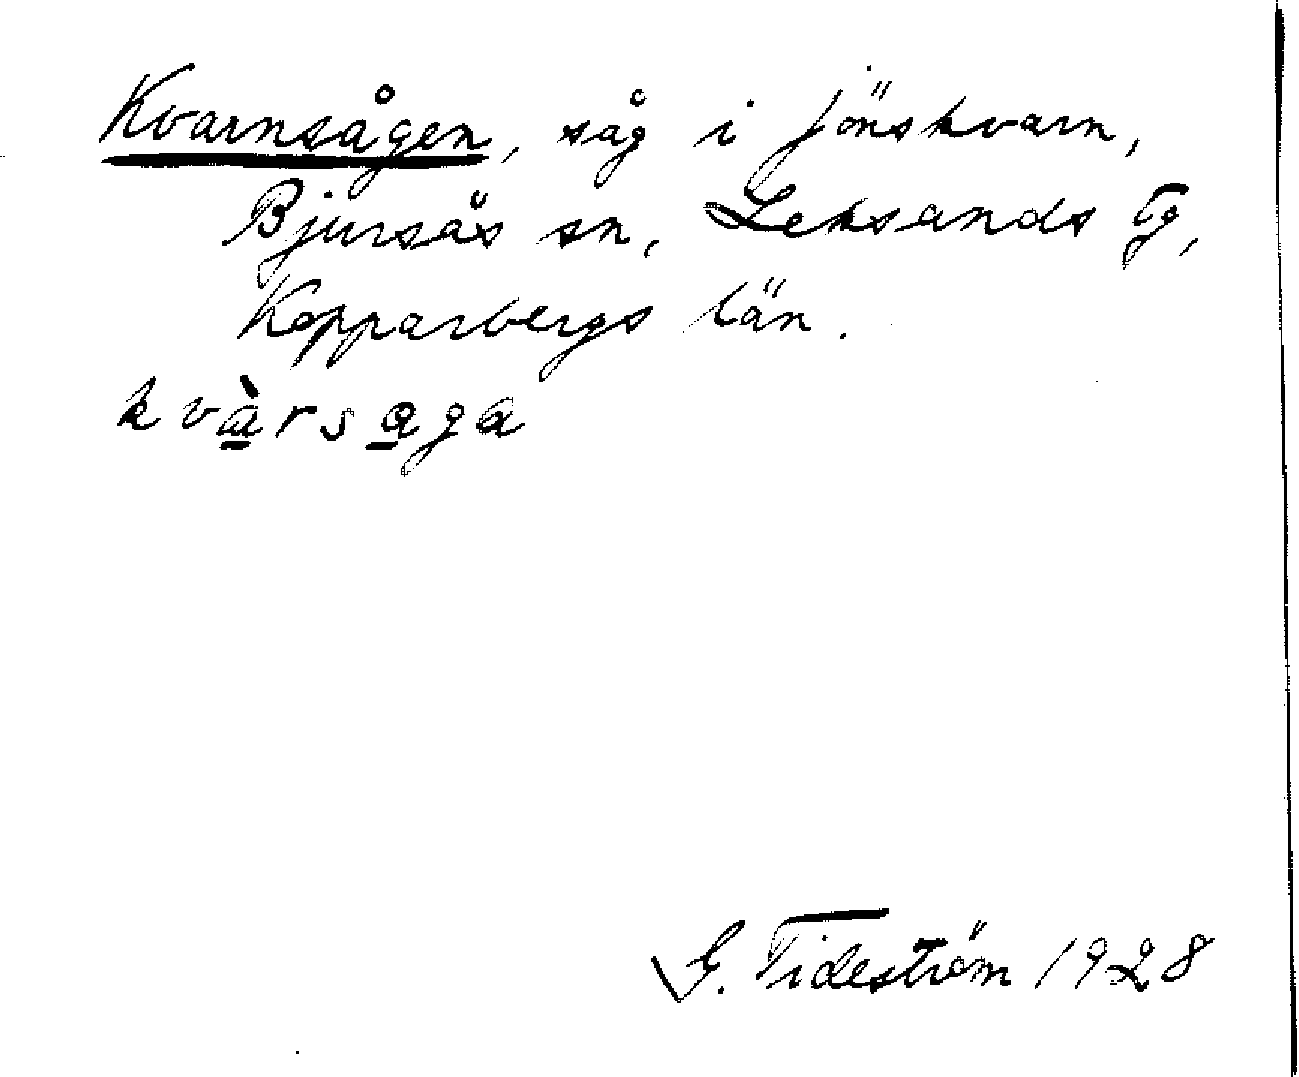 Kvarnsågen, såg i jönskvarn,
Bjursås sn, Leksands Tg,
Kopparbergs län.
kvàrsaga
G. Tideström 1928